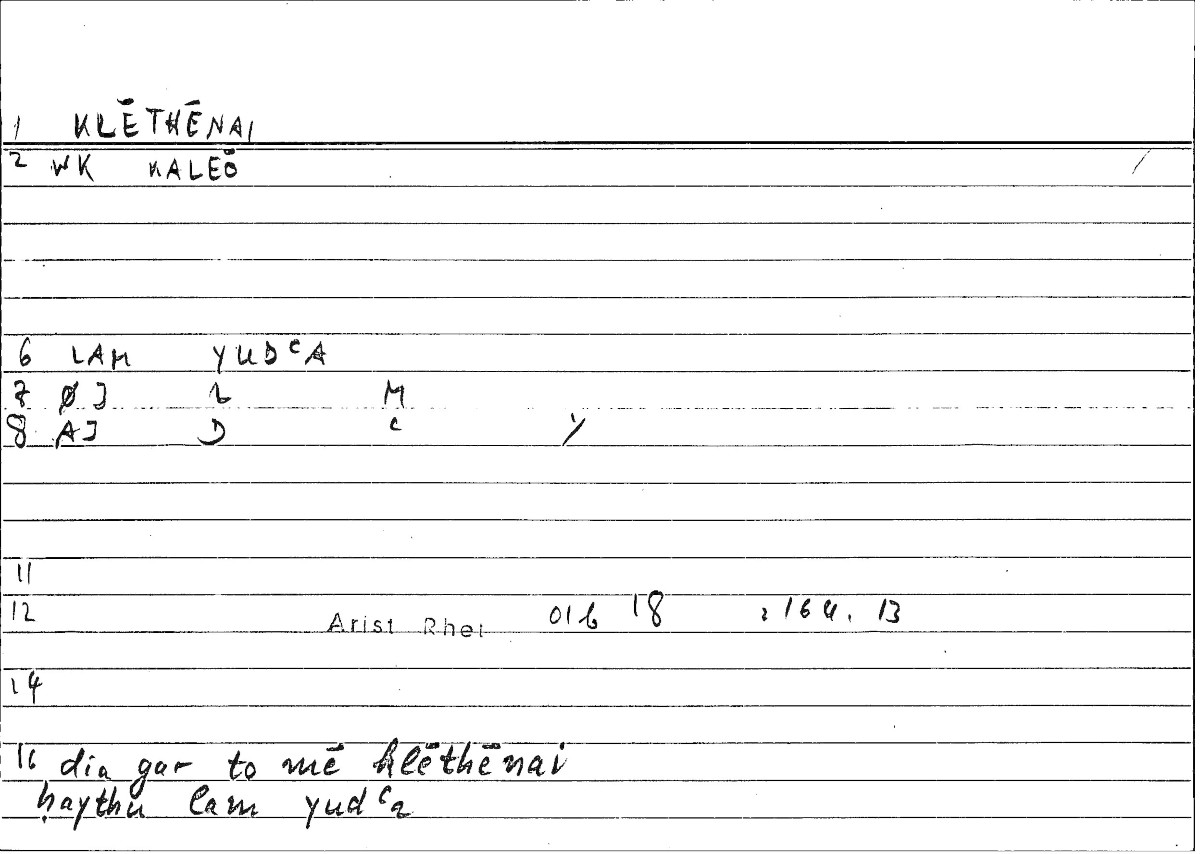 1 KLĒTHĒNAI
2 WK KALEŌ /
6 LAM YUDᶜA
7 ØJ L M
8 AJ D ᶜ Y
11
12 Arist Rhet 01b 18 : 164, 13
14
16 dia gar to mē klēthēnai
ḥaythu lam yudᶜa